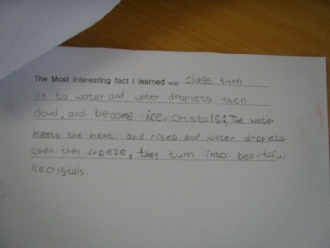 The Most Interesting fact I learned was class turn
in to water and water droplets then
cloud, and become icevcrstals; The water
meets the heat and rises and water droplets
when they freeze, they turn into beautiful
icecrystals